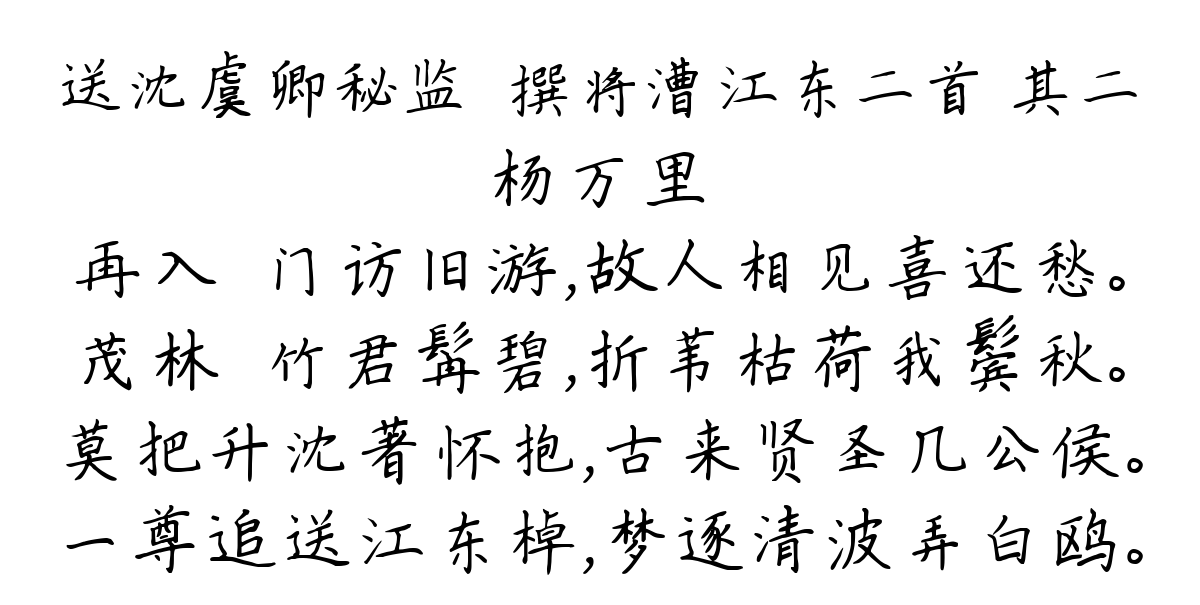 送沈虞卿秘监 撰将漕江东二首 其二
杨万里
再入 门访旧游,故人相见喜还愁。
茂林 竹君髯碧,折苇枯荷我鬓秋。
莫把升沈著怀抱,古来贤圣几公侯。
一尊追送江东棹,梦逐清波弄白鸥。